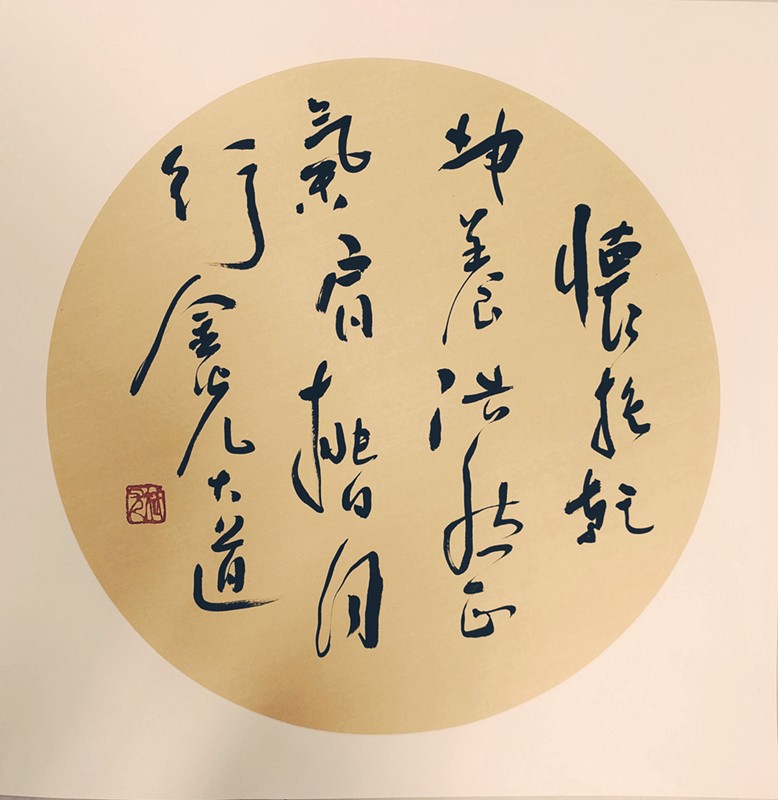 懷抱乾
坤養浩然正
氣肩挑日月
行金光大道